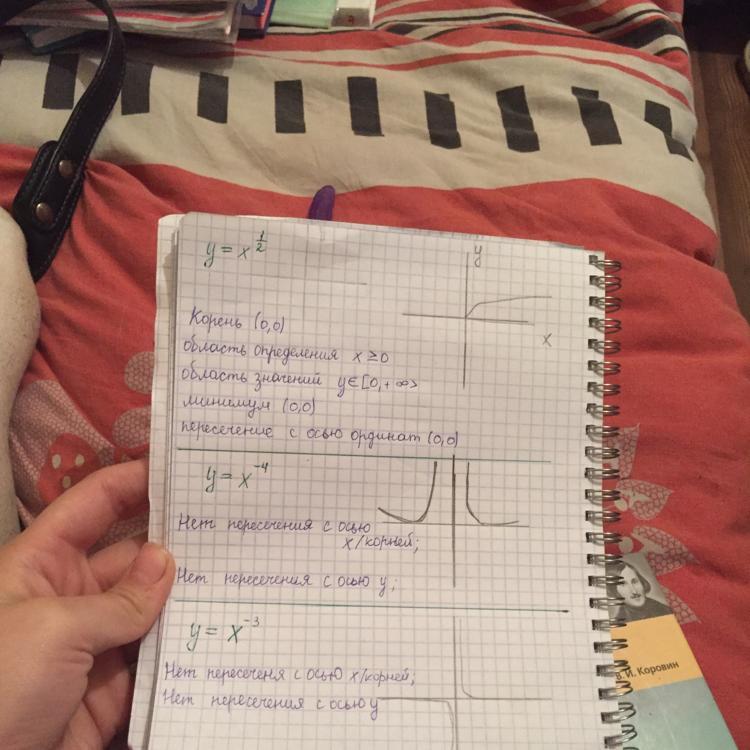 y = x^1/2
y
x
Корень (0,0)
область определения x ≥ 0
область значений y ∈ [0, + ∞>
минимум (0,0)
пересечение с осью ординат (0,0)
y = x^-4
Нет пересечения с осью
x/корней;
Нет пересечения с осью y;
y = x^-3
Нет пересеченя с осью x/корней;
Нет пересечения с осью y
В. И. Коровин